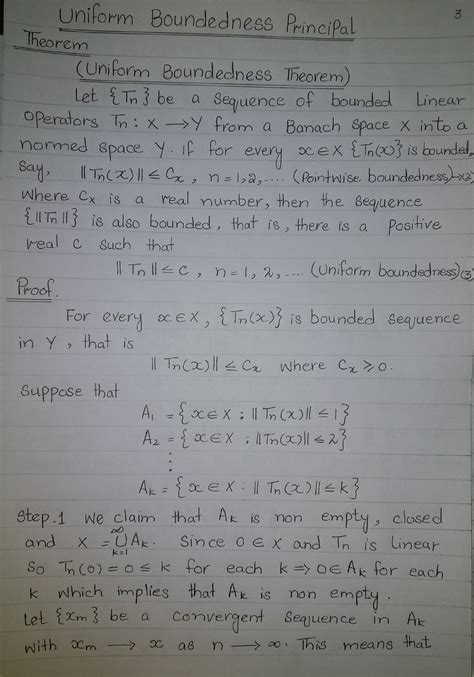 Uniform Boundedness Principal
3
Theorem
(Uniform Boundedness Theorem)
Let {Tn} be a sequence of bounded Linear
operators Tn : X → Y from a Banach space X into a
normed space Y. if for every x ∈ X {Tn(x)} is bounded,
say, ‖Tn(x)‖ ≤ Cx , n = 1,2,.... (Pointwise boundedness)
where Cx is a real number, then the sequence
{‖Tn‖} is also bounded, that is, there is a positive
real c such that
‖Tn‖ ≤ c , n = 1, 2, .... (Uniform boundedness) (3)
Proof.
For every x ∈ X, {Tn(x)} is bounded sequence
in Y, that is
‖Tn(x)‖ ≤ Cx where Cx ≥ 0.
Suppose that
A1 = {x ∈ X ; ‖Tn(x)‖ ≤ 1}
A2 = {x ∈ X ; ‖Tn(x)‖ ≤ 2}
⋮
Ak = {x ∈ X : ‖Tn(x)‖ ≤ k}
Step.1 We claim that Ak is non empty, closed
and X = ∞⋃k=1 Ak. Since 0 ∈ X and Tn is linear
So Tn(0) = 0 ≤ k for each k ⇒ 0 ∈ Ak for each
k which implies that Ak is non empty.
Let {xm} be a convergent sequence in Ak
with xm → x as n → ∞. This means that